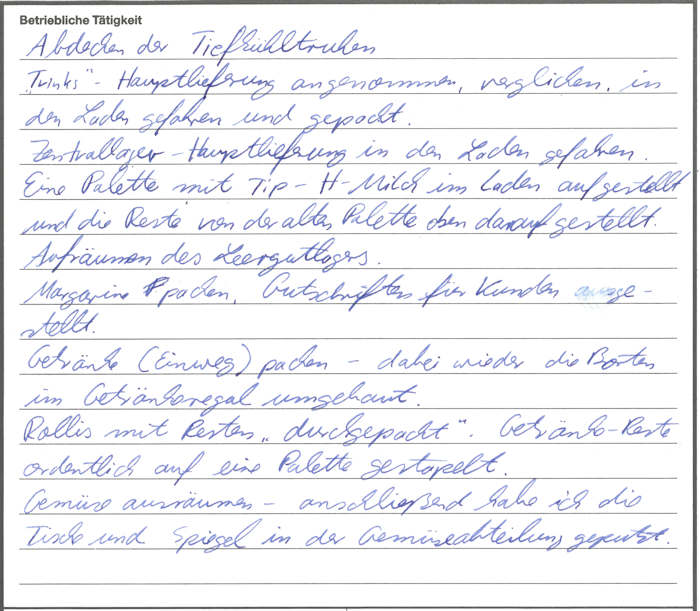 Betriebliche Tätigkeit
Abdecken der Tiefkühltruhen
„Trinks"- Hauptlieferung angenommen, verglichen, in
den Laden gefahren und gepackt.
Zentrallager - Hauptlieferung in den Laden gefahren.
Eine Palette mit Tip - H-Milch im Laden aufgestellt
und die Reste von der alten Palette oben darauf gestellt.
Aufräumen des Leergutlagers.
Margarine packen, Gutschriften für Kunden ausge-
stellt.
Getränke (Einweg) packen - dabei wieder die Borten
im Getränkeregal umgebaut.
Rollis mit Resten „durchgepackt". Getränke-Reste
ordentlich auf eine Palette gestapelt.
Gemüse ausräumen - anschließend habe ich die
Tische und Spiegel in der Gemüseabteilung geputzt.